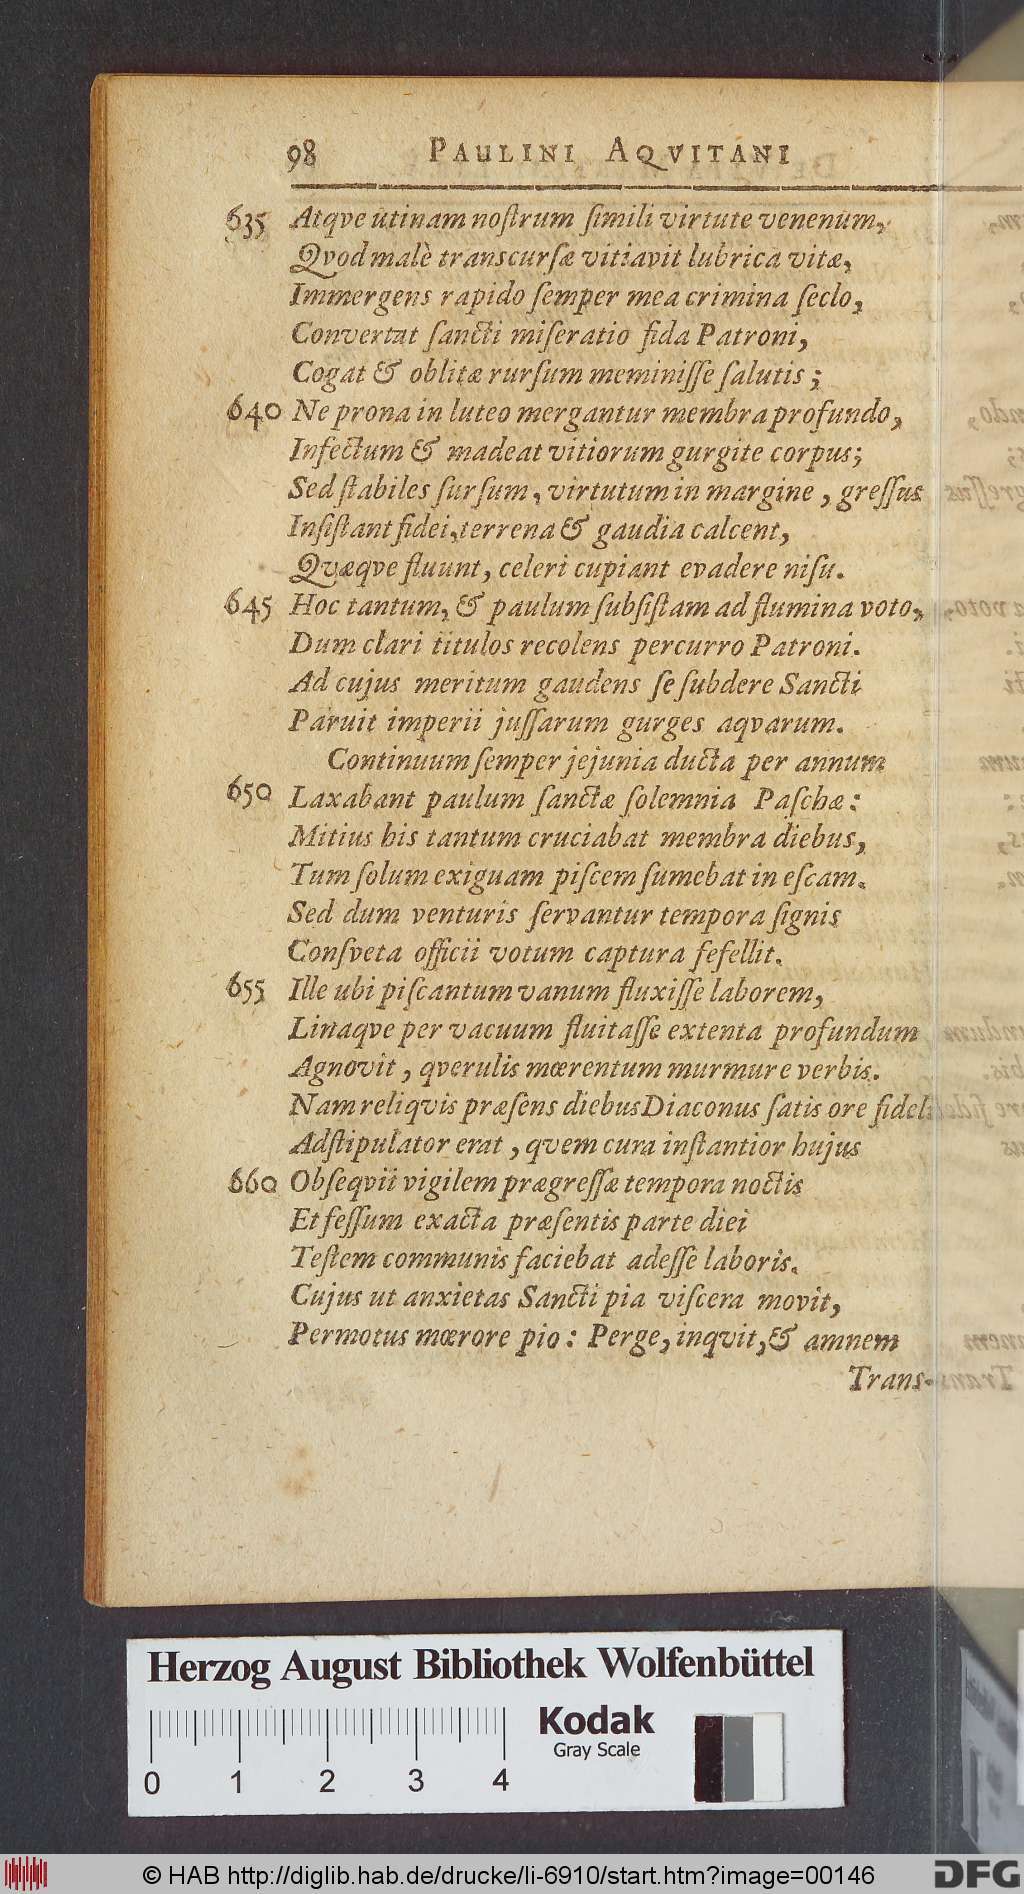 98 PAULINI AQVITANI
635 Atqve utinam noſtrum ſimili virtute venenum,
Qvod malè transcurſæ vitiavit lubrica vitæ,
Immergens rapido ſemper mea crimina ſeclo,
Convertat ſancti miſeratio fida Patroni,
Cogat & oblitæ rurſum meminiſſe ſalutis;
640 Ne prona in luteo mergantur membra profundo,
Infectum & madeat vitiorum gurgite corpus;
Sed ſtabiles ſurſum, virtutum in margine, greſſus
Inſiſtant fidei, terrena & gaudia calcent,
Qvæqve fluunt, celeri cupiant evadere niſu.
645 Hoc tantum, & paulum ſubſiſtam ad flumina voto,
Dum clari titulos recolens percurro Patroni.
Ad cujus meritum gaudens ſe ſubdere Sancti
Paruit imperii juſſarum gurges aqvarum.
Continuum ſemper jejunia ducta per annum
650 Laxabant paulum ſanctæ ſolemnia Paſchæ:
Mitius his tantum cruciabat membra diebus,
Tum ſolum exiguam piſcem ſumebat in eſcam.
Sed dum venturis ſervantur tempora ſignis
Conſveta officii votum captura fefellit.
655 Ille ubi piſcantum vanum fluxiſſe laborem,
Linaqve per vacuum fluitaſſe extenta profundum
Agnovit, qverulis mœrentum murmure verbis.
Nam reliqvis præſens diebus Diaconus ſatis ore fideli
Adſtipulator erat, qvem cura inſtantior hujus
660 Obſeqvii vigilem prægreſſæ tempora noctis
Et feſſum exacta præſentis parte diei
Teſtem communis faciebat adeſſe laboris.
Cujus ut anxietas Sancti pia viſcera movit,
Permotus mœrore pio: Perge, inqvit, & amnem
Trans-
Herzog August Bibliothek Wolfenbüttel
Kodak
Gray Scale
0 1 2 3 4
© HAB http://diglib.hab.de/drucke/li-6910/start.htm?image=00146
DFG